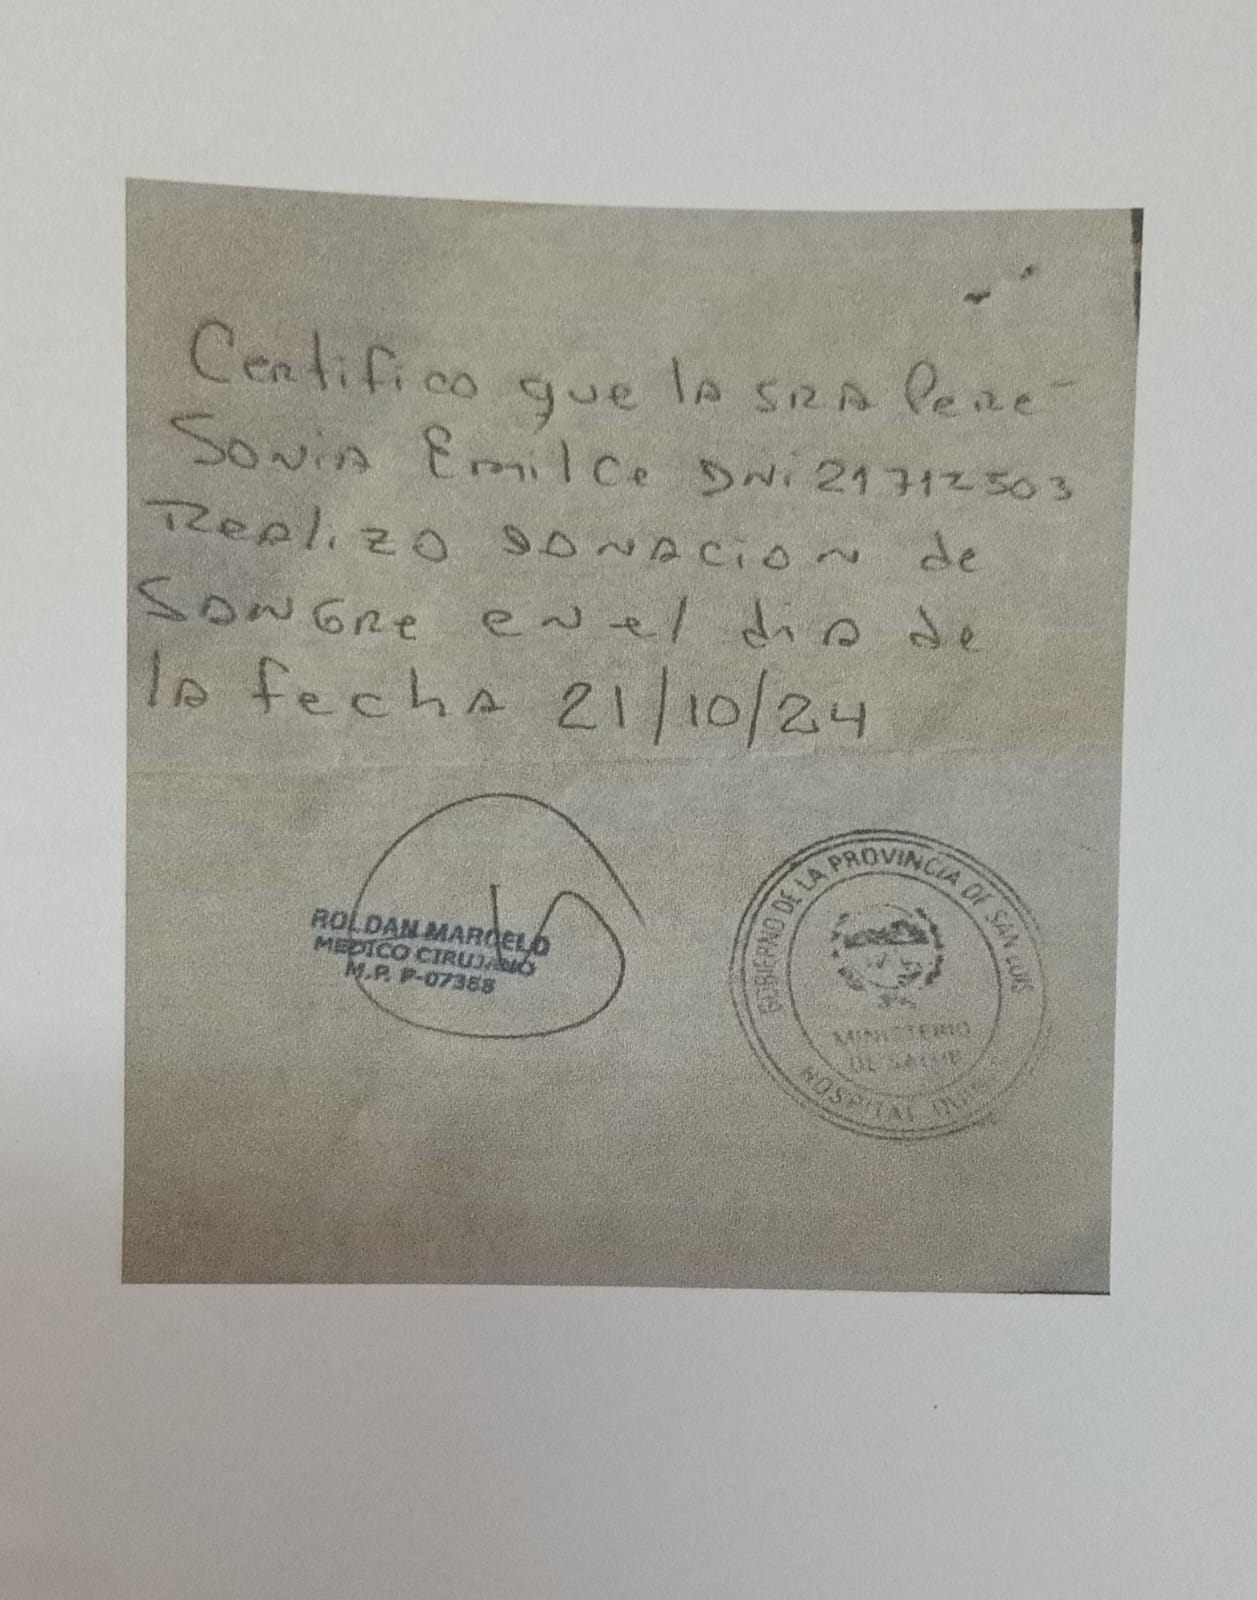 Certifico que la SRA Pere
Sonia Emilce DNi 21712503
Realizo donacion de
Sangre en el dia de
la fecha 21/10/24
ROLDAN MARCELO
MEDICO CIRUJANO
M.P. P-07388
GOBIERNO DE LA PROVINCIA DE SAN LUIS
MINISTERIO
DE SALUD
HOSPITAL